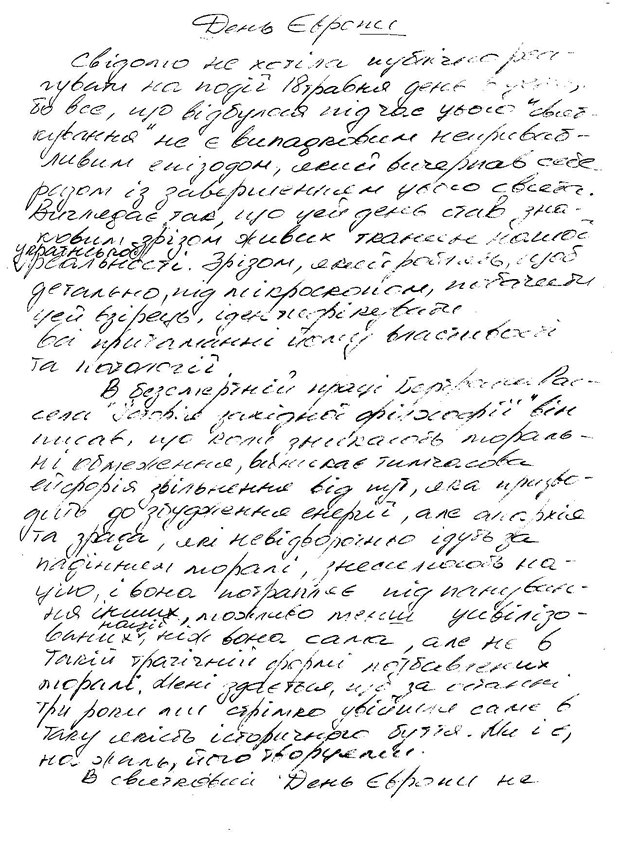 День Європи
Свідомо не хотіла публічно реа-
гувати на події 18 травня день
то все, що відбулося під час цього "свят-
кування" не є випадковим неприваб-
ливим епізодом, який вичерпав себе
разом із завершенням цього свята.
Виглядає так, що цей день став зна-
ковим зрізом живих тканин нашої
української
реальності. Зрізом, який роблять, щоб
детально, під мікроскопом, побачити
цей взірець, ідентифікувати
всі притаманні йому властивості
та патології
В безсмертній праці Бертрана Рас-
села "Історія західної філософії" він
писав, що коли зникають мораль-
ні обмеження, виникає тимчасова
ейфорія звільнення від пут, яка призво-
дить до збудження енергії, але анархія
та зрада, які невідворотньо ідуть за
падінням моралі, знесилюють на-
цію, і вона потрапляє під пануван-
ня інших, можливо менш цивілізо-
націй
ваних, ніж вона сама, але не в
такій трагічній формі позбавлених
моралі. Мені здається, що за останні
три роки ми стрімко увійшли саме в
таку якість історичного буття. Ми і є,
на жаль, його творцями.
В святковий День Європи не